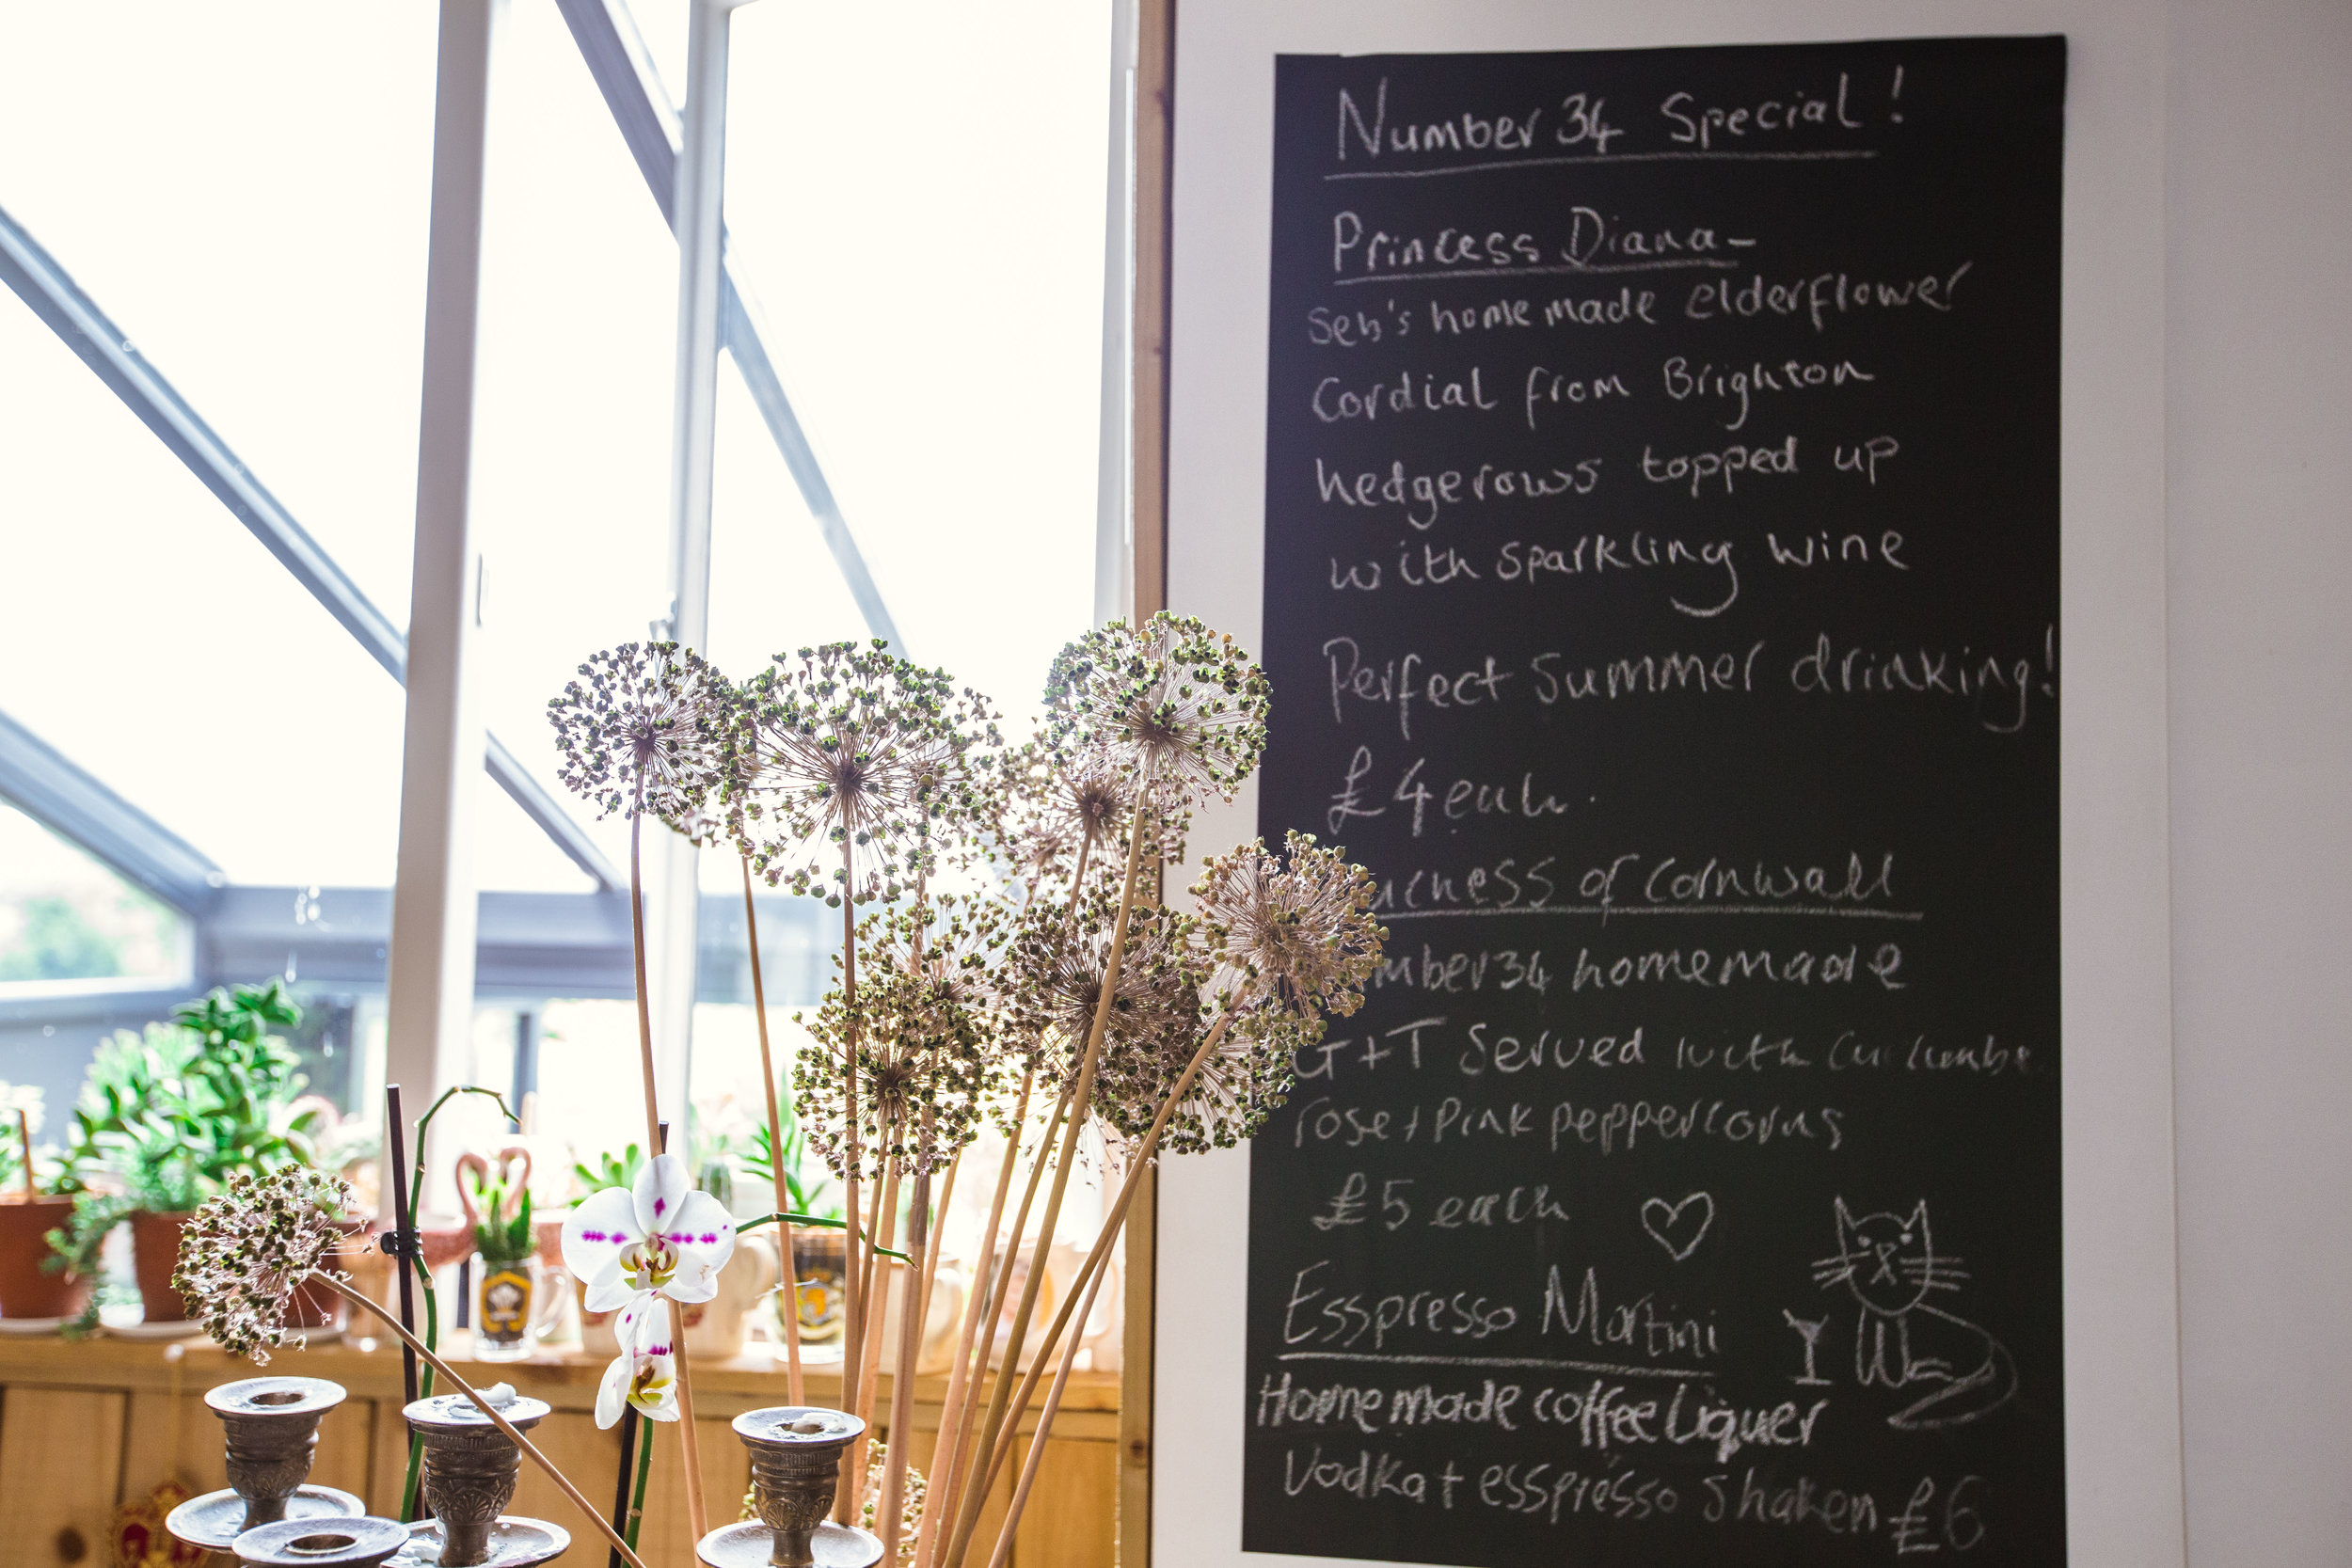 Number 34 Special!
Princess Diana -
Seb's homemade elderflower
Cordial from Brighton
hedgerows topped up
with sparkling wine
Perfect Summer drinking!
£4 each.
of Cornwall
34 homemade
G+T Served with
rose + Pink peppercorns
£5 each
Esspresso Martini
Homemade coffee Liquer
Vodka + esspresso Shaken £6